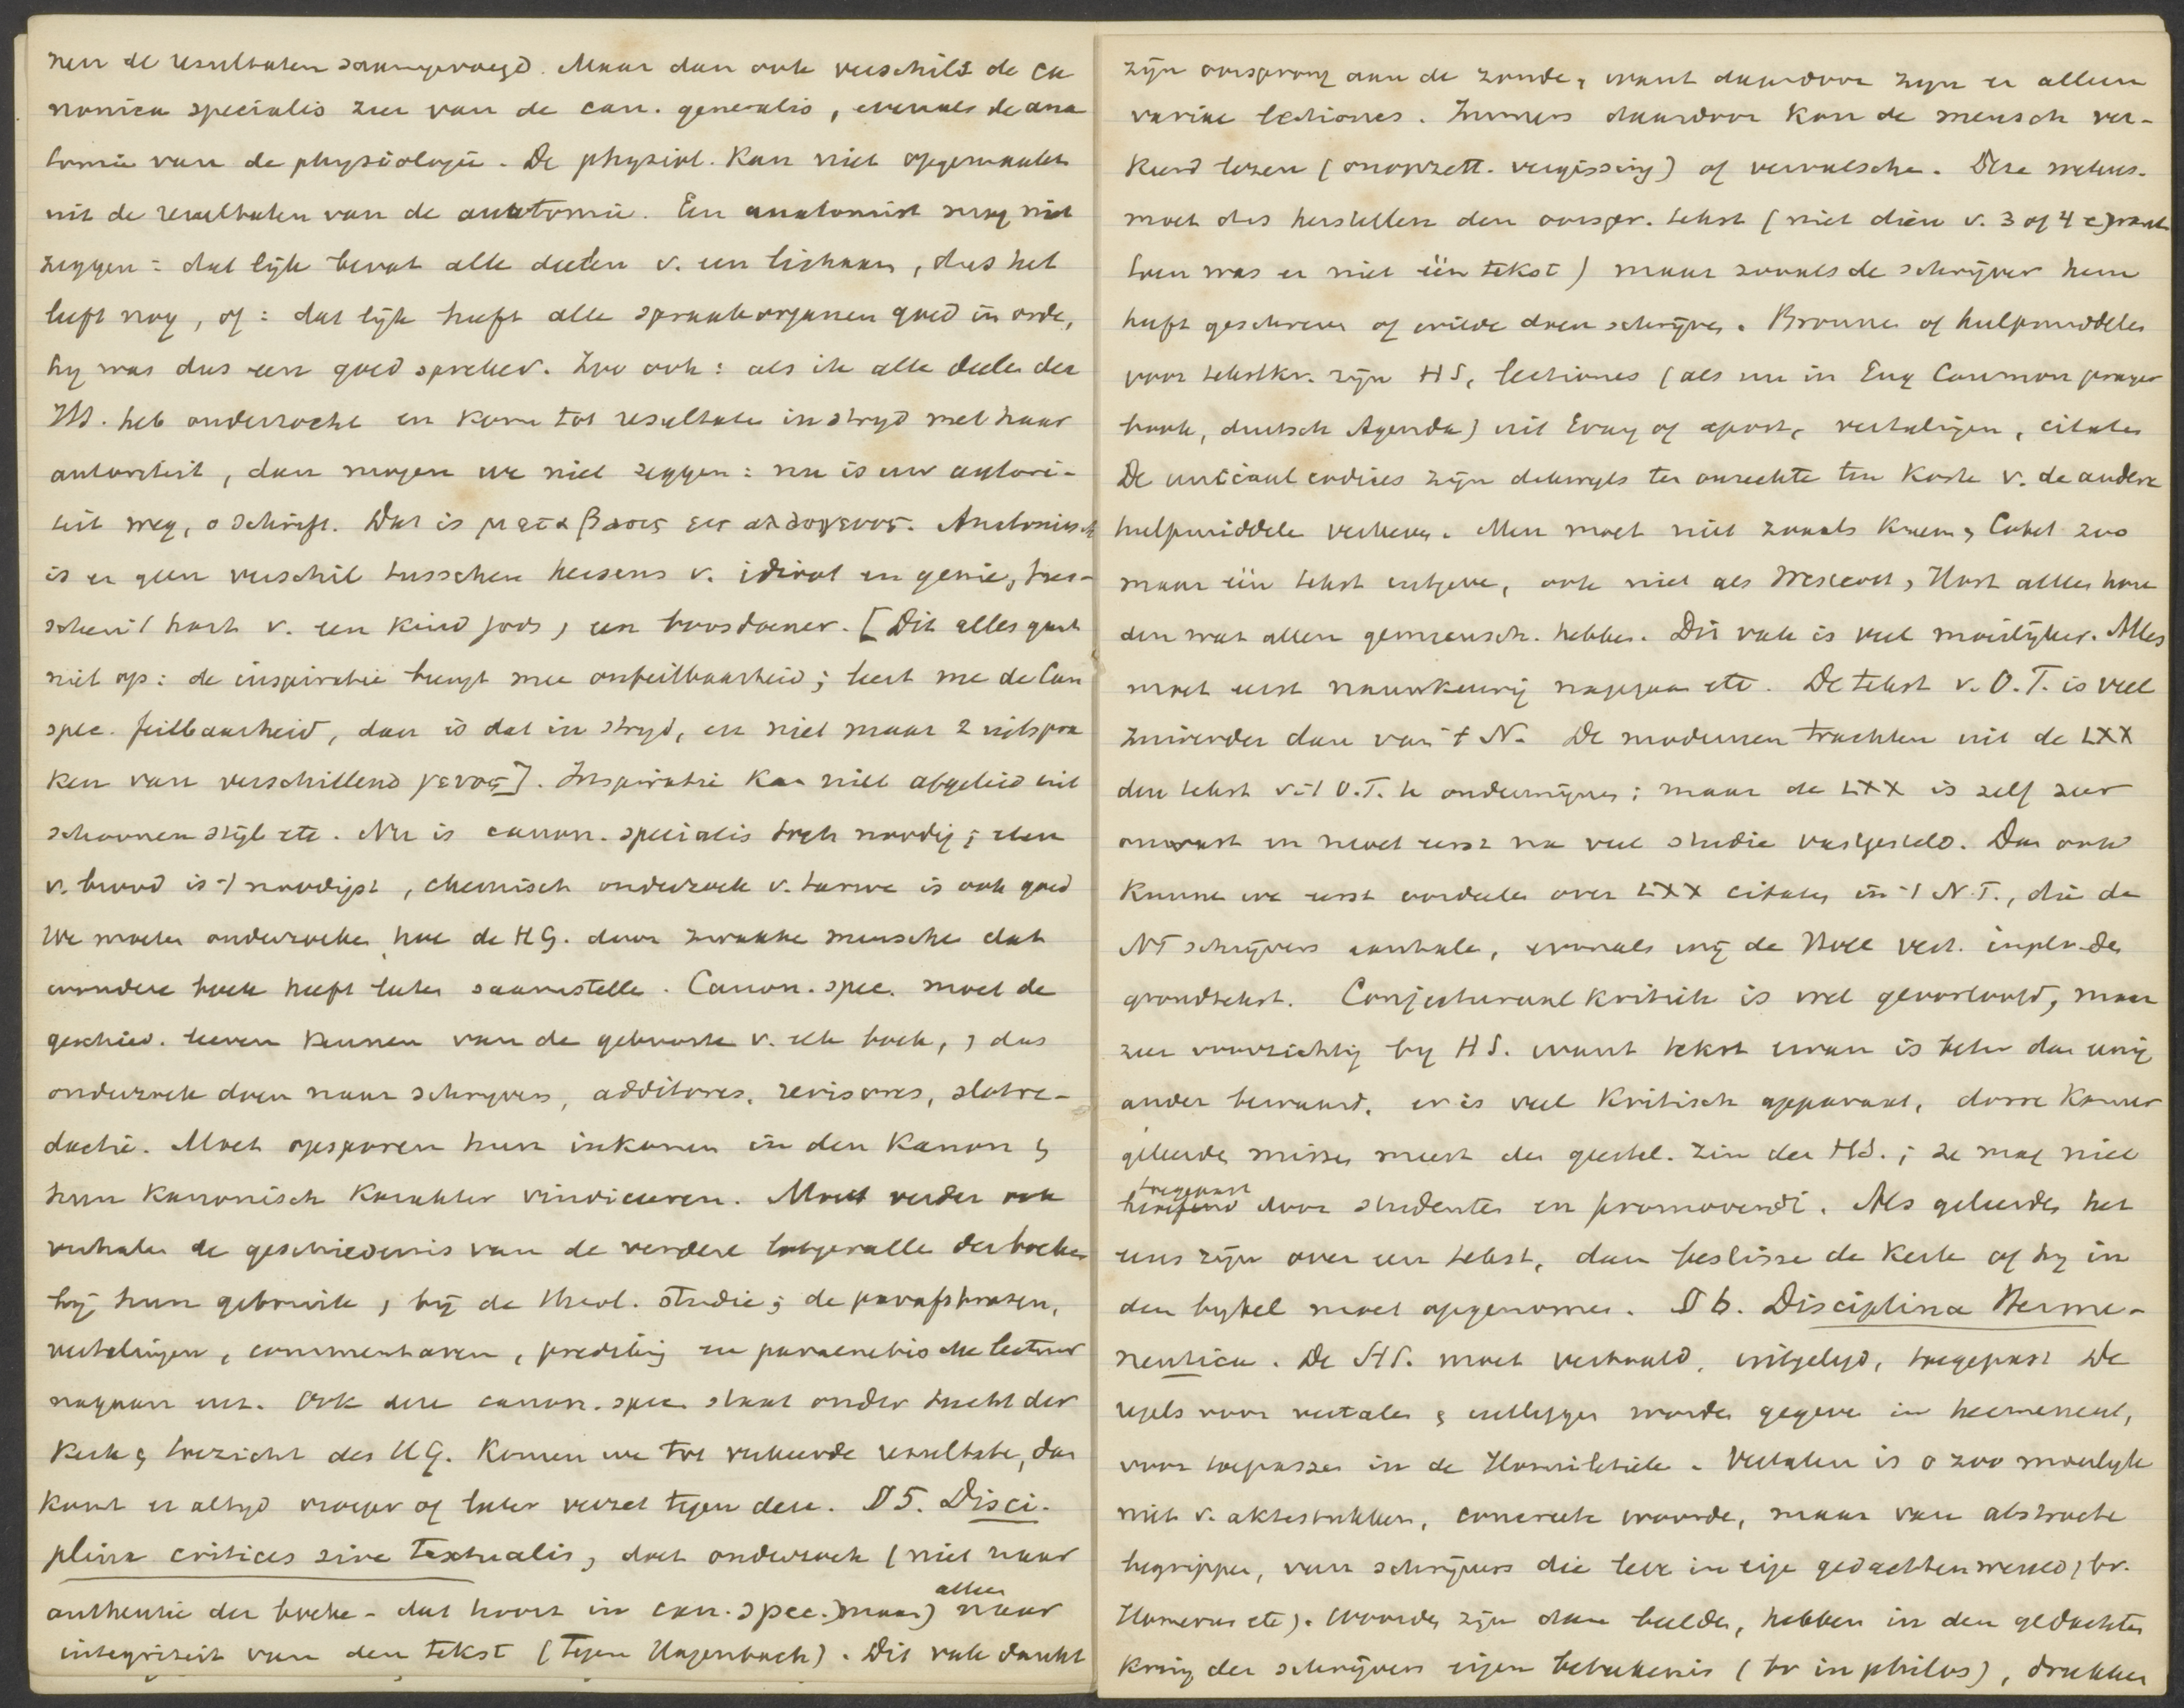 nen de resultaten saamgevoegd. Maar dan ook verschilt de ca
nonica specialis zeer van de can. generalis, evenals de ana
tomie van de physiologie. De physiol. kan niet opgemaakt
uit de resultaten van de anatomie. Een anatomist mag niet
zeggen: dat lijk bevat alle deelen v. een lichaam, dus het
leeft nog, of: dat lijk heeft alle spraakorganen goed in orde,
hij was dus een goed spreker. Zoo ook: als ik alle deelen der
HS. heb onderzocht en kom tot resultaten in strijd met haar
autoriteit, dan mogen we niet zeggen: nu is uw autori-
teit weg, o Schrift. Dat is μεταβασις εις αλλο γενος. Anatomisch
is er geen verschil tusschen hersens v. idioot en genie, tus-
schen 't hart v. een kind Gods, een boosdoener. [Dit alles gaat
niet op: de inspiratie brengt mee onfeilbaarheid; leert me de Can
spec. feilbaarheid, dan is dat in strijd, en niet maar 2 uitspra
ken van verschillend γενος]. Inspiratie kan niet afgeleid uit
schoonen stijl etc. Nu is canon. specialis toch noodig; eten
v. brood is 't noodigst, chemisch onderzoek v. tarwe is ook goed
We moeten onderzoeken hoe de H.G. door zwakke menschen dat
wondere boek heeft laten saamstellen. Canon. spec. moet de
geschied. leeren kennen van de geboorte v. elk boek, dus
onderzoek doen naar schrijvers, additores, revisores, slotre-
dactie. Moet opsporen hun inkomen in den Kanon
hun Kanonisch Karakter vindiceeren. Moet verder ook
verhalen de geschiedenis van de verdere lotgevallen der boeken
bij hun gebruik, bij de theol. studie; de parafrasen,
vertalingen, commentaren, prediking en paraenetische lectuur
nagaan enz. Ook deze canon. spec. staat onder tucht der
Kerk toezicht des H.G. Komen we tot verkeerde resultaten, dan
komt er altijd vroeger of later verzet tegen deze. § 5. Disci-
plina critices sive Textualis, doet onderzoek (niet naar
authentie der boeken - dat hoort in can. spec.) maar) alleen naar
integriteit van den tekst (tegen Hagenbach). Dit vak dankt
zijn oorsprong aan de zonde, want daardoor zijn er alleen
variae lectiones. Immers daardoor kan de mensch ver-
keerd lezen (onopzett. vergissing) of vervalschen. Deze wetens.
moet dus herstellen den oorspr. tekst (niet dien v. 3 of 4 e) want
toen was er niet één tekst) maar zooals de schrijver hem
heeft geschreven of wilde doen schrijven. Bronnen of hulpmiddelen
voor tekstkr. zijn HS, lectiones (als nu in Eng Common prayer
book, duitsch Agenda) uit Evang of apost, vertalingen, citaten
De unciaal codices zijn dikwijls ten onrechte ten koste v. de andere
hulpmiddelen verheven. Men moet niet zooals Kuenen, Cobet zoo
maar één tekst uitgeven, ook niet als Westcott, Hort alles hou
den wat allen gemeensch. hebben. Dit vak is veel moeilijker. Alles
moet eerst nauwkeurig nagegaan etc. De tekst v. O.T. is veel
zuiverder dan van 't N. De modernen trachten uit de LXX
den tekst v. 't O.T. te ondermijnen; maar de LXX is zelf zeer
onvast en moet eerst na veel studie vastgesteld. Dan ook
kunnen we eerst oordeelen over LXX citaten in 't N.T., die de
NT schrijvers aanhalen, evenals wij de Holl vert. inpl. v. den
grondtekst. Conjecturaal kritiek is wel geoorloofd, maar
zeer voorzichtig bij HS. want tekst ervan is beter dan enig
ander bewaard, er is veel kritisch apparaat, dorre kamer
geleerden missen meest den geestel. zin der HS.; ze mag niet
toegepast door studenten en promovendi. Als geleerden het
eens zijn over een tekst, dan beslisse de Kerk of hij in
den bijbel moet opgenomen. § 6. Disciplina Herme-
neutica. De HS. moet vertaald, uitgelegd, toegepast De
regels voor vertalen uitleggen worden gegeven in hermeneut,
voor toepassen in de Homiletiek. Vertalen is o zoo moeilijk
niet v. aktestukken, concrete woorden, maar van abstracte
begrippen, van schrijvers die leven in eigen gedachtenwereld, bv.
Homerus etc). Woorden zijn dan beelden, hebben in den gedachten
kring der schrijvers eigen beteekenis (bv in philos), drukken